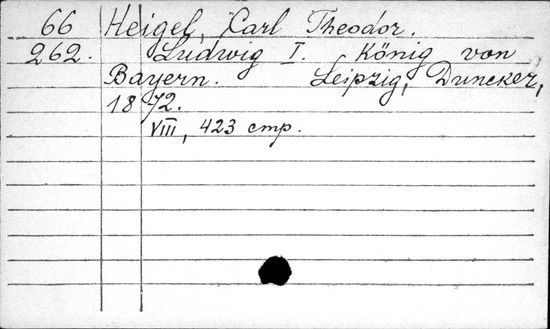 66 Heigel, Carl Theodor.
262. Ludwig I. König von
Bayern. Leipzig, Duncker,
1872.
VIII, 423 стр.